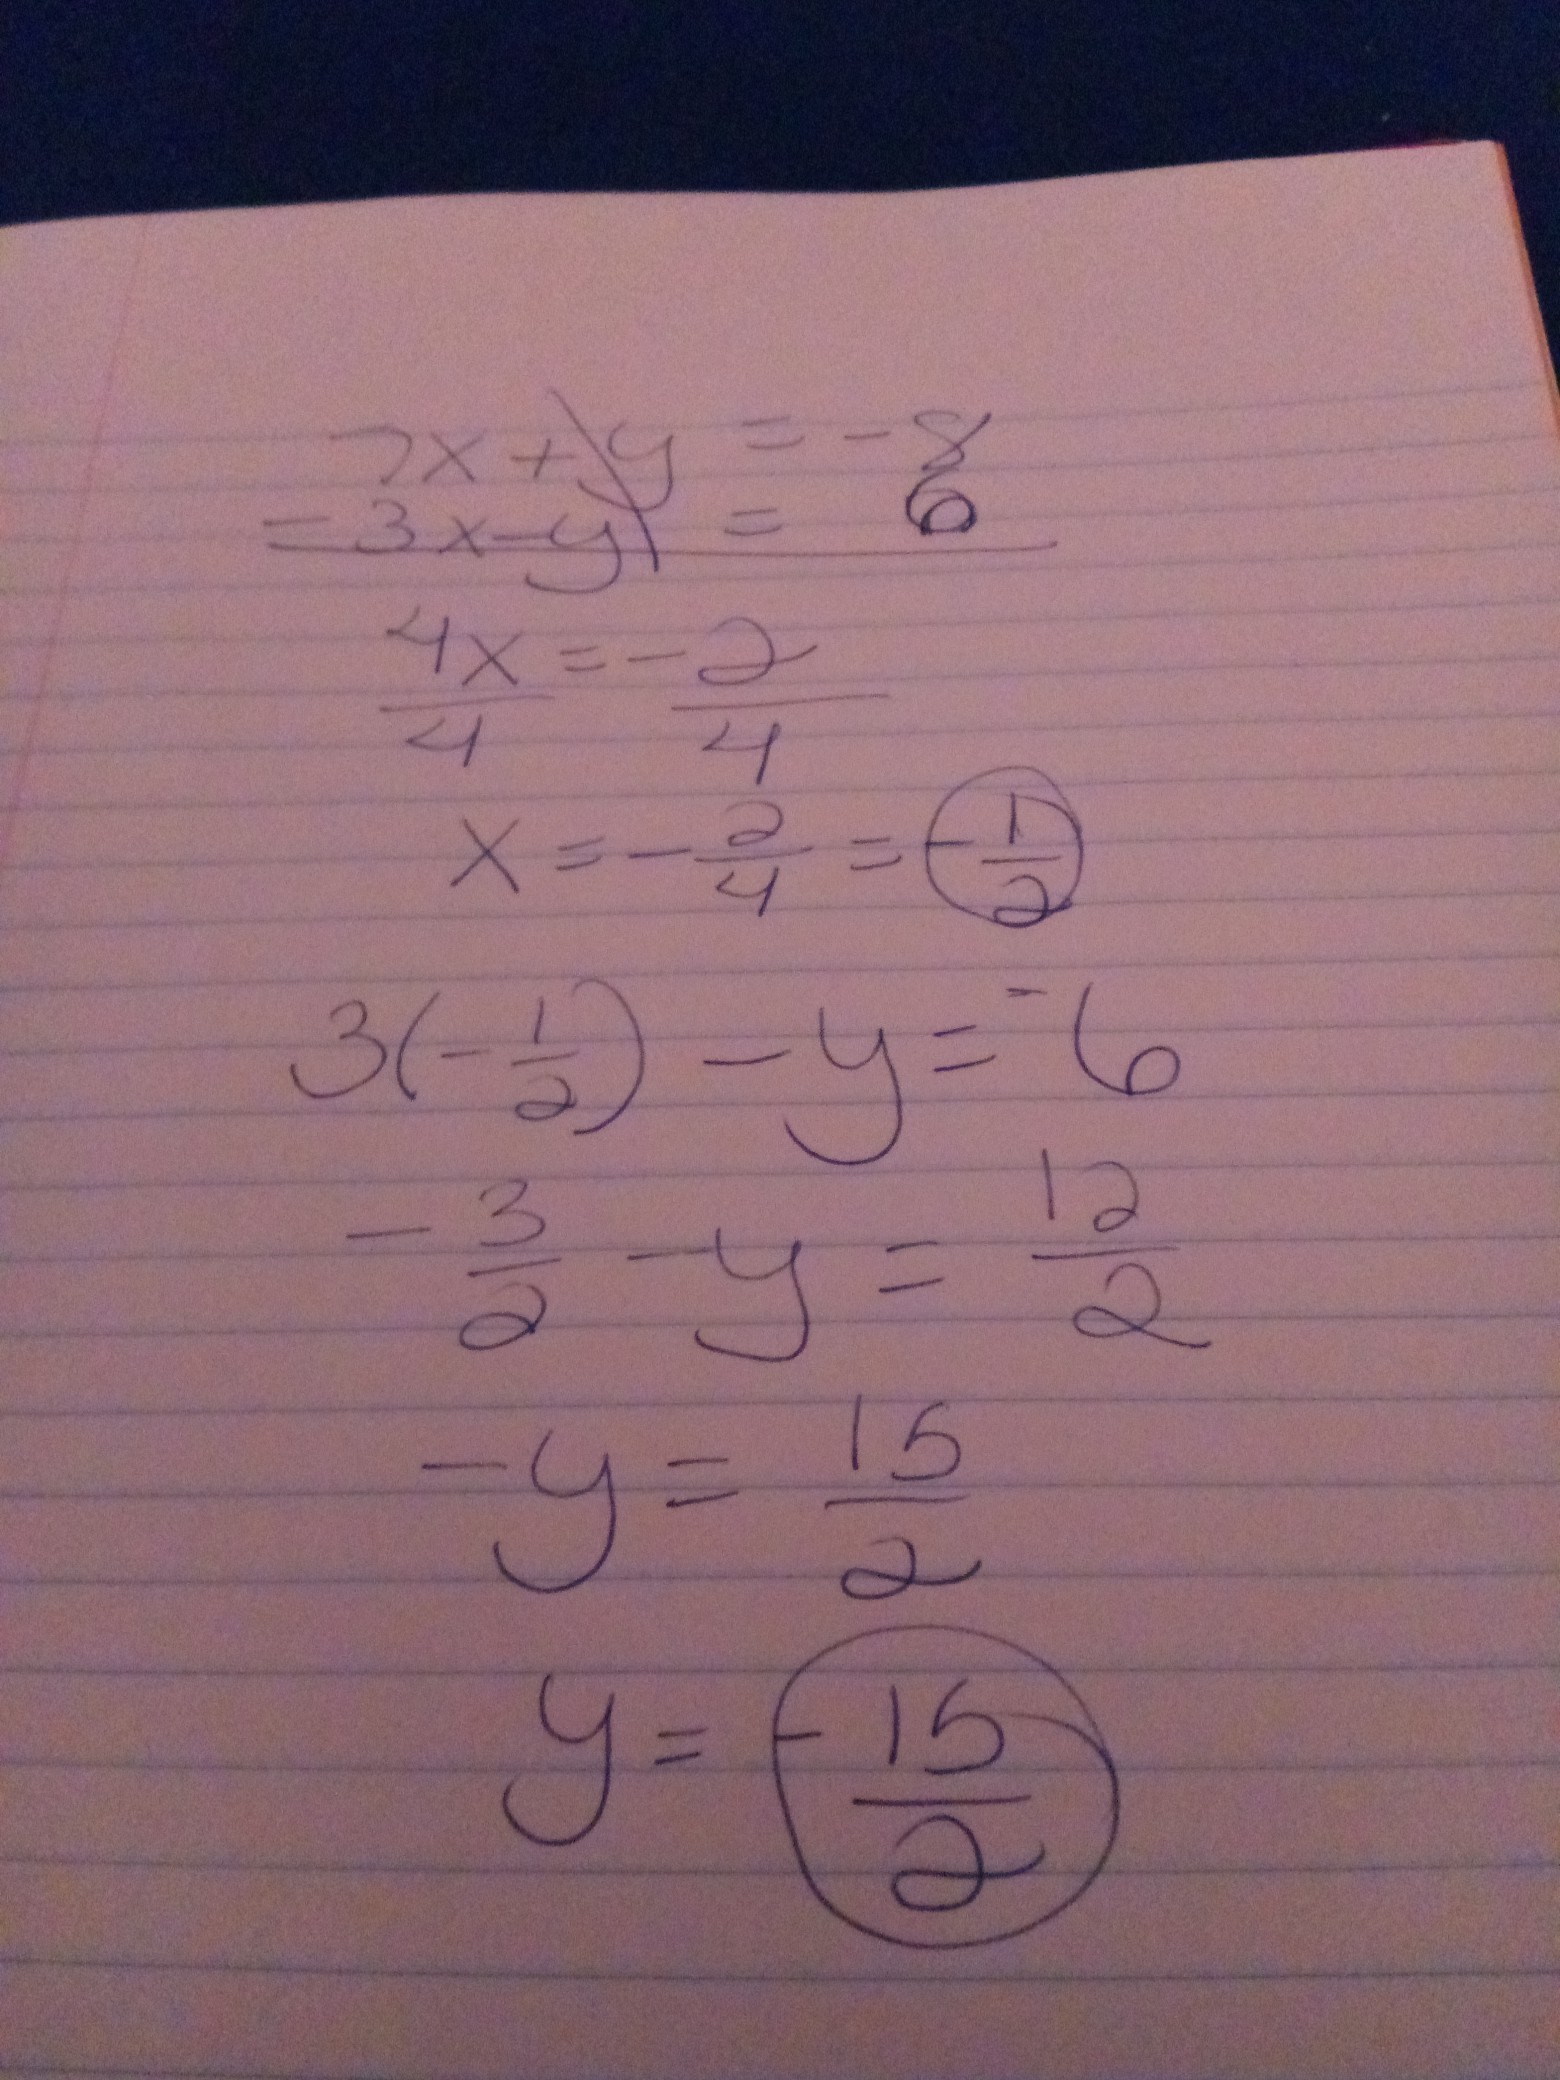 7x + y = -8
-3x - y = 6
4x = -2
4 4
x = -2/4 = -1/2
3(-1/2) - y = -6
-3/2 - y = 12/2
-y = 15/2
y = -15/2